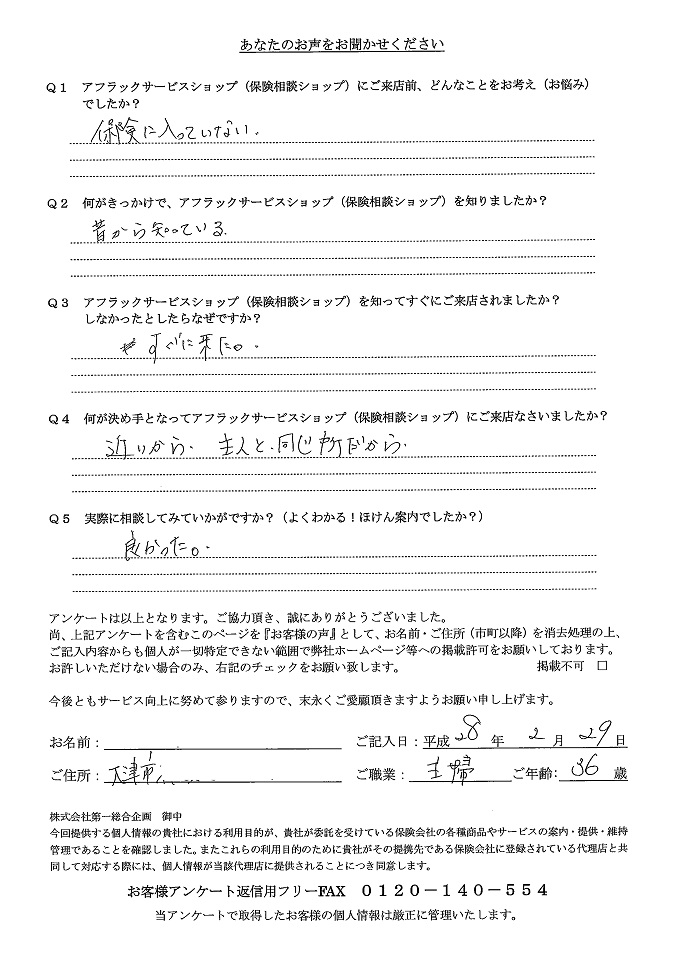 あなたのお声をお聞かせください
Q1 アフラックサービスショップ（保険相談ショップ）にご来店前、どんなことをお考え（お悩み）
でしたか？
保険に入っていない.
Q2 何がきっかけで、アフラックサービスショップ（保険相談ショップ）を知りましたか？
昔から知っている.
Q3 アフラックサービスショップ（保険相談ショップ）を知ってすぐにご来店されましたか？
しなかったとしたらなぜですか？
すぐに来た。.
Q4 何が決め手となってアフラックサービスショップ（保険相談ショップ）にご来店なさいましたか？
近いから. 主人と.同じ所だから.
Q5 実際に相談してみていかがですか？（よくわかる！ほけん案内でしたか？）
良かった。.
アンケートは以上となります。ご協力頂き、誠にありがとうございました。
尚、上記アンケートを含むこのページを『お客様の声』として、お名前・ご住所（市町以降）を消去処理の上、
ご記入内容からも個人が一切特定できない範囲で弊社ホームページ等への掲載許可をお願いしております。
お許しいただけない場合のみ、右記のチェックをお願い致します。 掲載不可 □
今後ともサービス向上に努めて参りますので、末永くご愛顧頂きますようお願い申し上げます。
お名前： ご記入日：平成 28 年 2 月 29 日
ご住所： 大津市 ご職業： 主婦 ご年齢： 36 歳
株式会社第一総合企画 御中
今回提供する個人情報の貴社における利用目的が、貴社が委託を受けている保険会社の各種商品やサービスの案内・提供・維持
管理であることを確認しました。またこれらの利用目的のために貴社がその提携先である保険会社に登録されている代理店と共
同して対応する際には、個人情報が当該代理店に提供されることにつき同意します。
お客様アンケート返信用フリーFAX ０１２０－１４０－５５４
当アンケートで取得したお客様の個人情報は厳正に管理いたします。